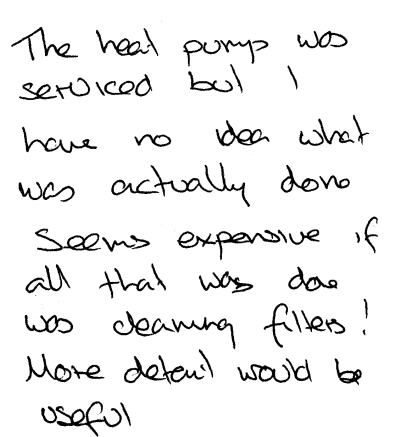 The heat pump was
serviced but I
have no idea what
was actually done
Seems expensive if
all that was done
was cleaning filters!
More detail would be
useful